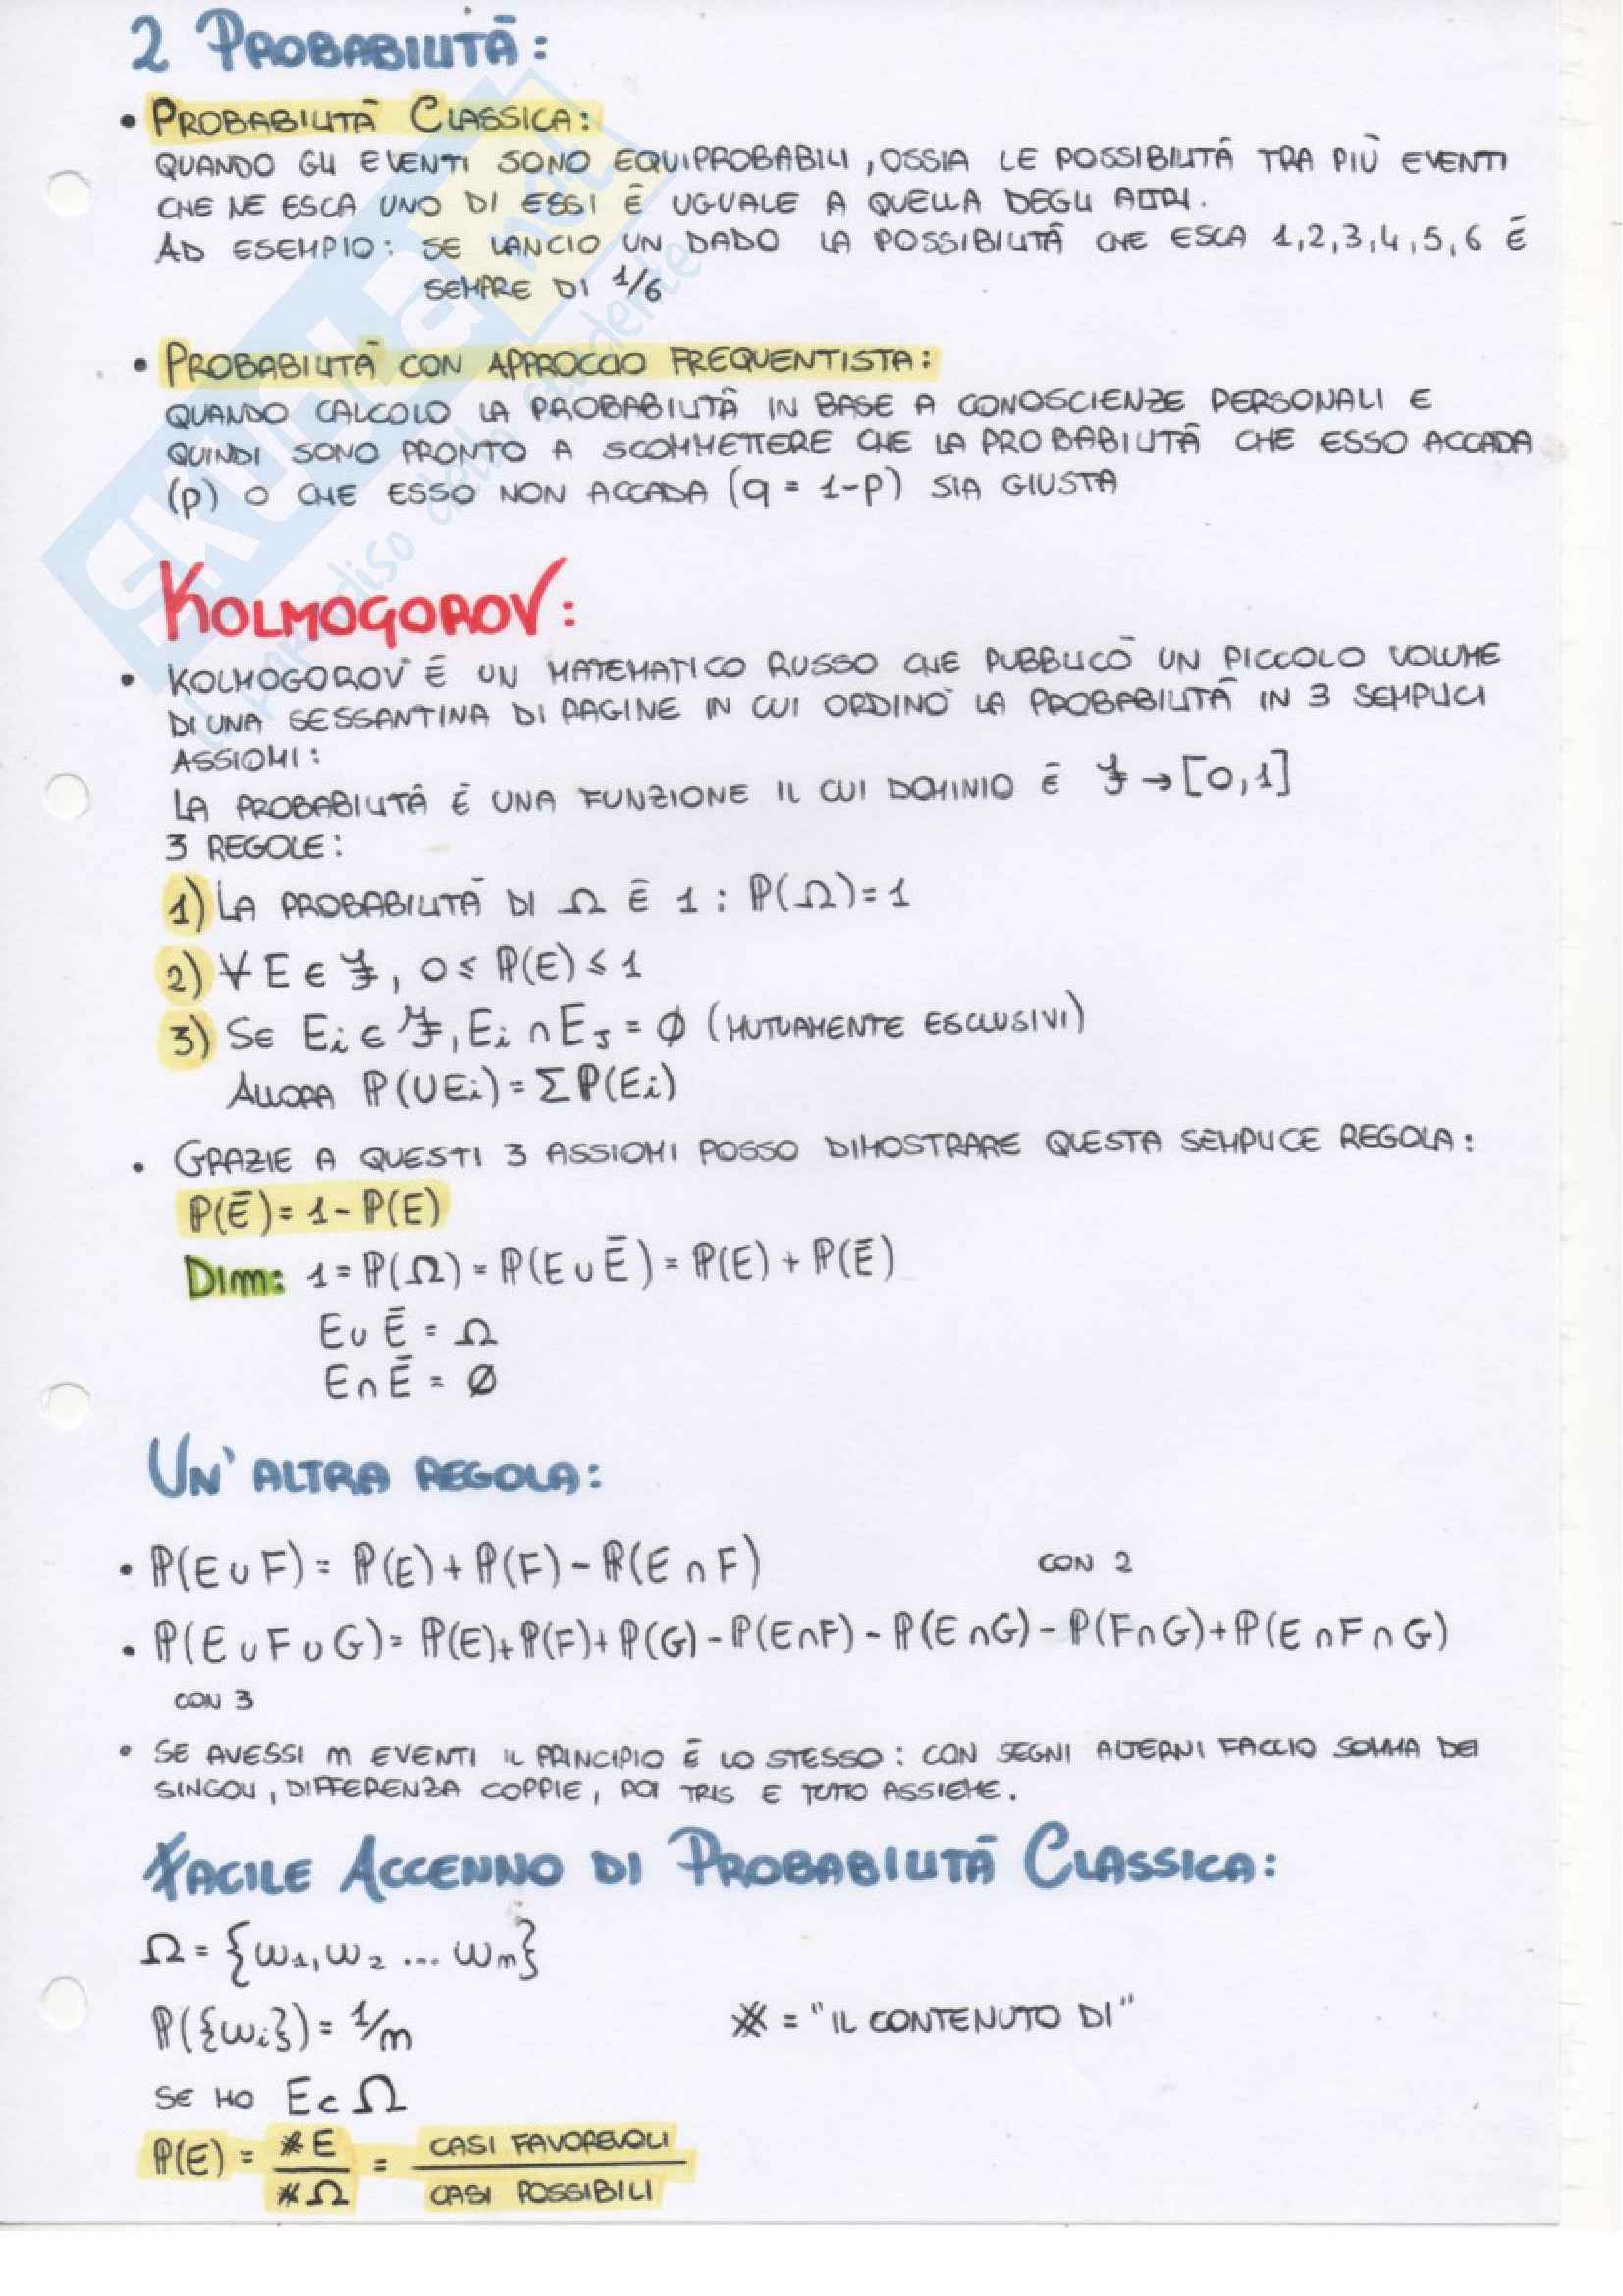 2 PROBABILITÀ:
• PROBABILITÀ CLASSICA:
QUANDO GLI EVENTI SONO EQUIPROBABILI, OSSIA LE POSSIBILITÀ TRA PIÙ EVENTI
CHE NE ESCA UNO DI ESSI È UGUALE A QUELLA DEGLI ALTRI.
AD ESEMPIO: SE LANCIO UN DADO LA POSSIBILITÀ CHE ESCA 1,2,3,4,5,6 È
SEMPRE DI 1/6
• PROBABILITÀ CON APPROCCIO FREQUENTISTA:
QUANDO CALCOLO LA PROBABILITÀ IN BASE A CONOSCIENZE PERSONALI E
QUINDI SONO PRONTO A SCOMMETTERE CHE LA PROBABILITÀ CHE ESSO ACCADA
(p) O CHE ESSO NON ACCADA (q = 1-p) SIA GIUSTA
KOLMOGOROV:
• KOLMOGOROV È UN MATEMATICO RUSSO CHE PUBBLICÒ UN PICCOLO VOLUME
DI UNA SESSANTINA DI PAGINE IN CUI ORDINÒ LA PROBABILITÀ IN 3 SEMPLICI
ASSIOMI:
LA PROBABILITÀ È UNA FUNZIONE IL CUI DOMINIO È ℱ → [0,1]
3 REGOLE:
1) LA PROBABILITÀ DI Ω È 1 : ℙ(Ω)=1
2) ∀ E ∈ ℱ, 0 ≤ ℙ(E) ≤ 1
3) SE Ei ∈ ℱ, Ei ∩ EJ = ∅ (MUTUAMENTE ESCLUSIVI)
ALLORA ℙ(∪Ei) = Σ ℙ(Ei)
• GRAZIE A QUESTI 3 ASSIOMI POSSO DIMOSTRARE QUESTA SEMPLICE REGOLA:
ℙ(Ē) = 1 - ℙ(E)
DIM: 1 = ℙ(Ω) = ℙ(E ∪ Ē) = ℙ(E) + ℙ(Ē)
E ∪ Ē = Ω
E ∩ Ē = ∅
UN'ALTRA REGOLA:
• ℙ(E ∪ F) = ℙ(E) + ℙ(F) - ℙ(E ∩ F) CON 2
• ℙ(E ∪ F ∪ G) = ℙ(E) + ℙ(F) + ℙ(G) - ℙ(E∩F) - ℙ(E ∩G) - ℙ(F∩G) + ℙ(E ∩ F ∩ G)
CON 3
• SE AVESSI m EVENTI IL PRINCIPIO È LO STESSO: CON SEGNI ALTERNI FACCIO SOMMA DEI
SINGOLI, DIFFERENZA COPPIE, POI TRIS E TUTTO ASSIEME.
FACILE ACCENNO DI PROBABILITÀ CLASSICA:
Ω = {ω1, ω2 ... ωm}
ℙ({ωi}) = 1/m # = "IL CONTENUTO DI"
SE HO E ⊂ Ω
ℙ(E) = #E / #Ω = CASI FAVOREVOLI / CASI POSSIBILI